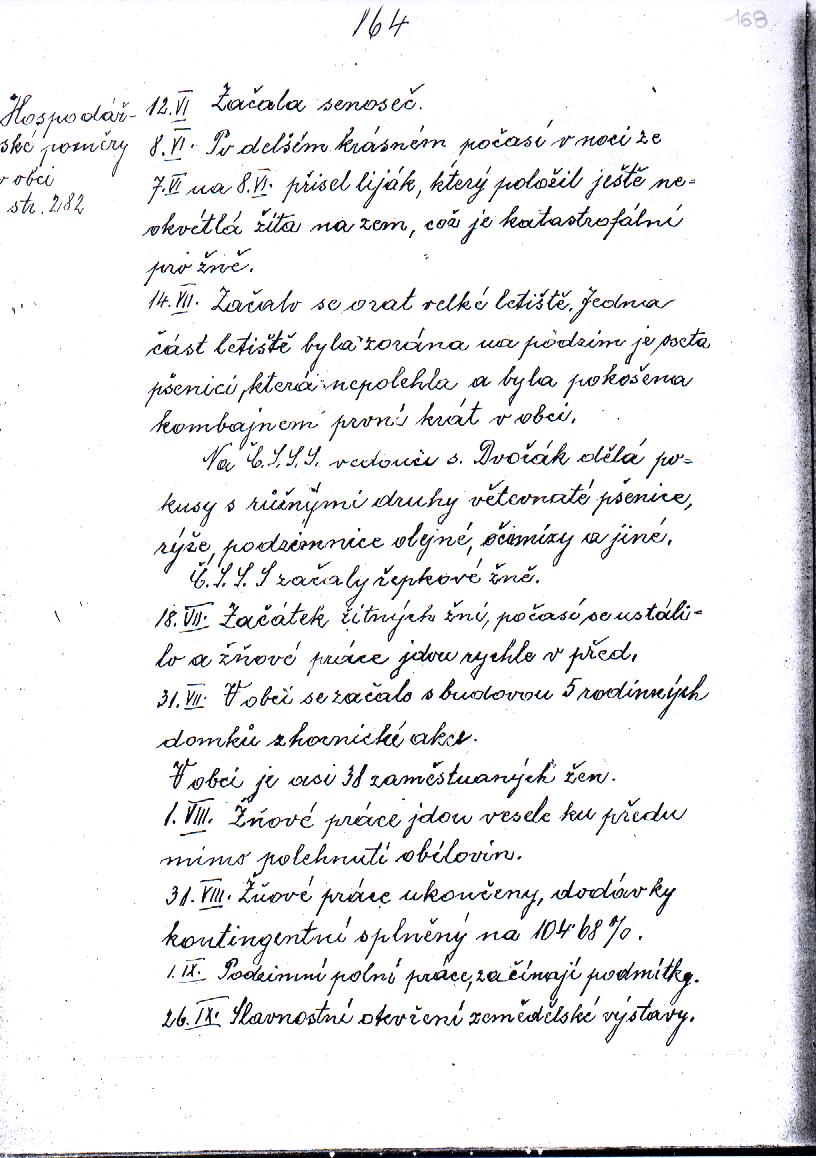 164
168
Hospodář-
ské poměry
v obci
str. 282
12.VI Začala senoseč.
8.VI. Po delším krásném počasí v noci ze
7.VI na 8.VI. přišel liják, který položil ještě ne=
okvétlá žita na zem, což je katastrofální
pro žně.
14.VII. Začalo se orat velké letiště. Jedna
část letiště byla zorána na podzim je oseta
pšenicí, která nepolehla a byla pokosena
kombajnem první krát v obci.
Na Č.S.S.S. vedoucí s. Dvořák dělá po=
kusy s různými druhy větevnaté pšenice,
rýže, podzemnice olejné, očimízy a jiné.
Č.S.S.S začaly řepkové žně.
18.VII. Začátek žitných žní, počasí se ustáli-
lo a žňové práce jdou rychle v před.
31.VII. V obci se začalo s budovou 5 rodinných
domků z hornické akce.
V obci je asi 38 zaměstnaných žen.
1.VIII. Žňové práce jdou vesele ku předu
mimo polehnutí obilovin.
31.VIII. Žňové práce ukončeny, dodávky
kontingentní splněný na 104'68%.
1.IX. Podzimní polní práce, začínají podmítky.
26.IX. Slavnostní otevření zemědělské výstavy.